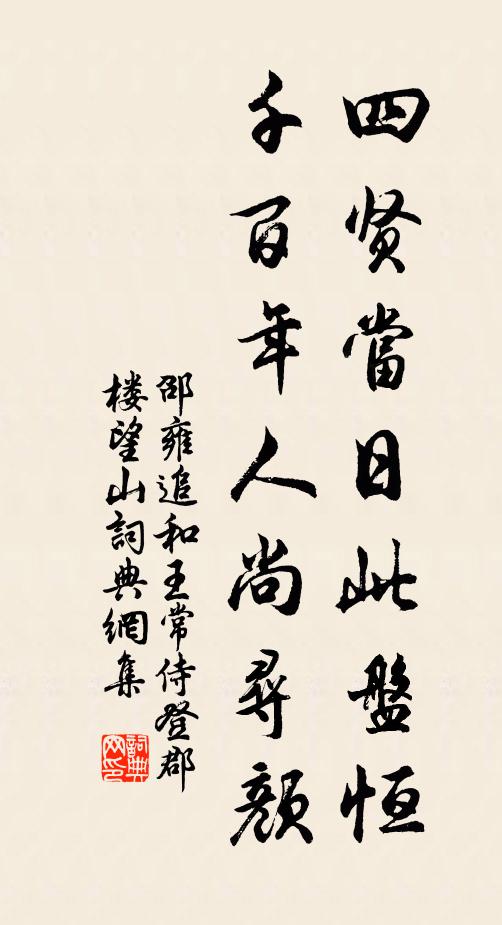 四贤當日此盤恒
千百年人尚尋顏
邵雍追和王常侍登郡
楼望山詞典網集
詞典網印